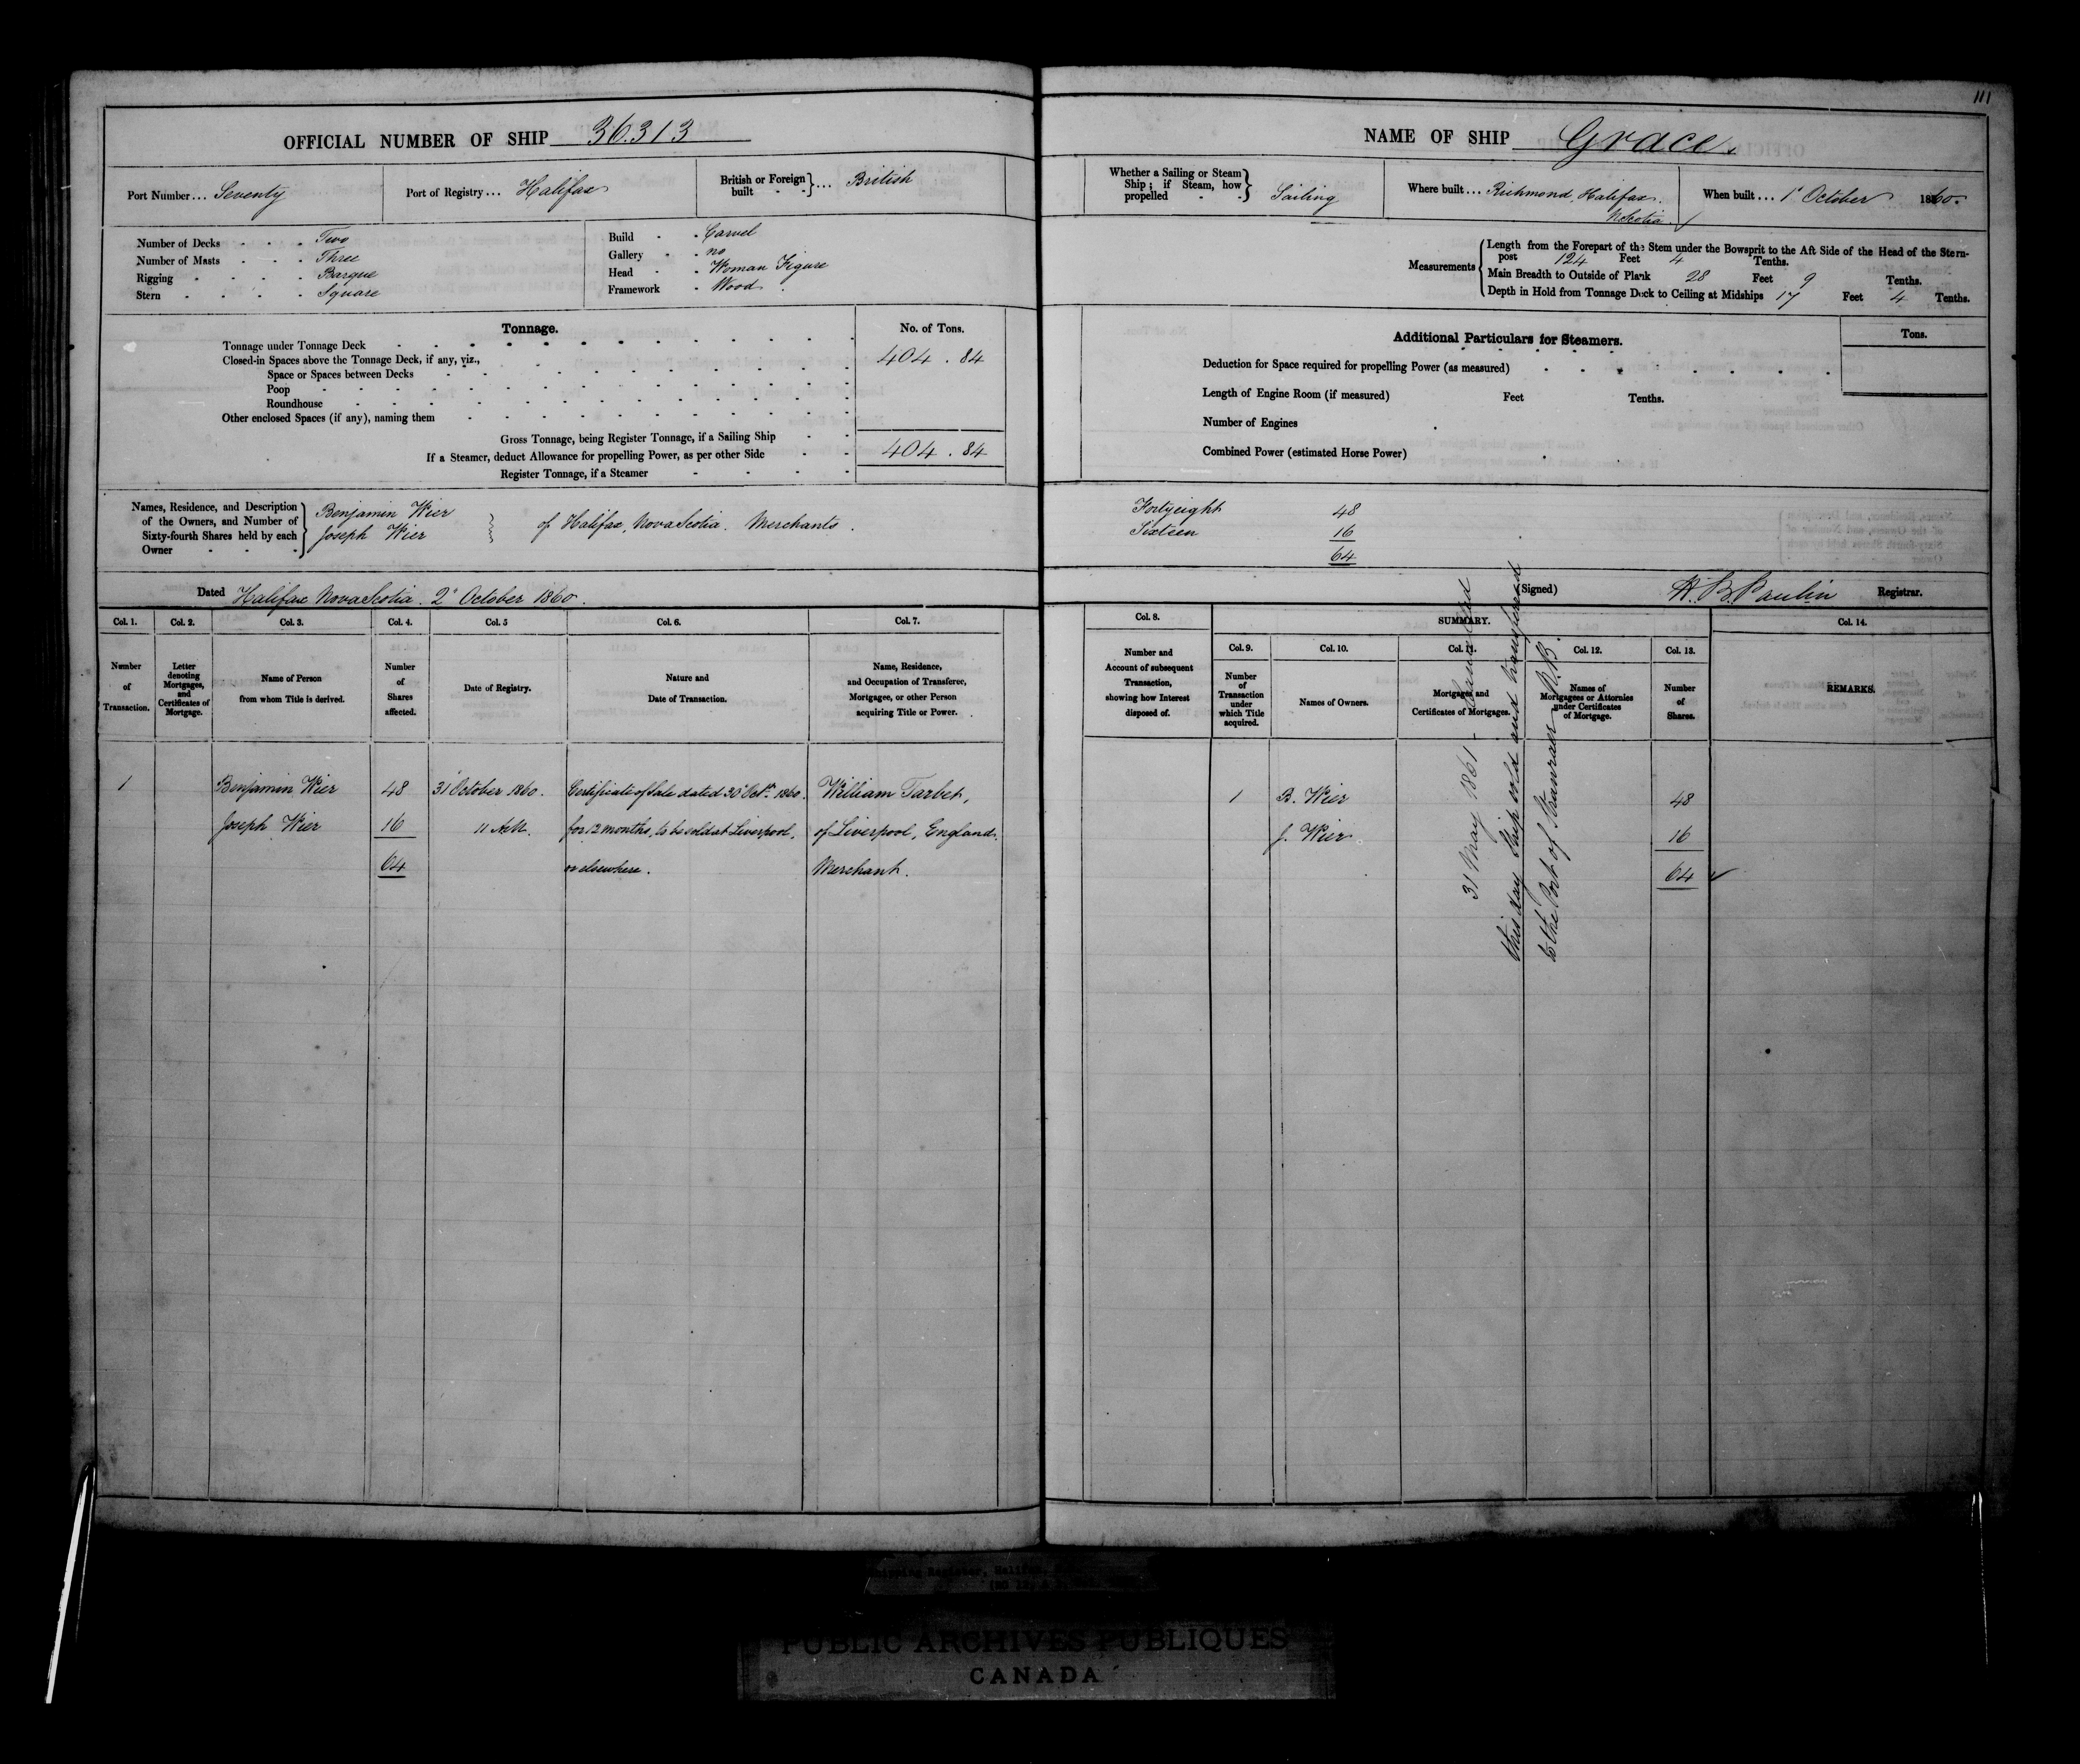 111
OFFICIAL NUMBER OF SHIP 36.313
Port Number ... Seventy
Port of Registry ... Halifax
British or Foreign built } ... British
Number of Decks - - - Two
Number of Masts - - - Three
Rigging - - - - Barque
Stern - - - - Square
Build - - Carvel
Gallery - - no
Head - - Woman Figure
Framework - Wood
Tonnage.
No. of Tons.
Tonnage under Tonnage Deck 404 . 84
Closed-in Spaces above the Tonnage Deck, if any, viz.,
Space or Spaces between Decks
Poop
Roundhouse
Other enclosed Spaces (if any), naming them
Gross Tonnage, being Register Tonnage, if a Sailing Ship
If a Steamer, deduct Allowance for propelling Power, as per other Side 404 . 84
Register Tonnage, if a Steamer
Names, Residence, and Description of the Owners, and Number of Sixty-fourth Shares held by each Owner
Benjamin Wier
Joseph Wier
} of Halifax, Nova Scotia. Merchants.
Dated Halifax Nova Scotia. 2d October 1860.
Col. 1. Col. 2. Col. 3. Col. 4. Col. 5 Col. 6. Col. 7.
Number of Transaction.
Letter denoting Mortgages, and Certificates of Mortgage.
Name of Person from whom Title is derived.
Number of Shares affected.
Date of Registry.
Nature and Date of Transaction.
Name, Residence, and Occupation of Transferee, Mortgagee, or other Person acquiring Title or Power.
1 Benjamin Wier 48 31 October 1860. Certificate of Sale dated 30 Octr. 1860. William Tarbet,
Joseph Wier 16 11 AM. for 12 months, to be sold at Liverpool, of Liverpool, England.
64 or elsewhere. Merchant.
NAME OF SHIP Grace.
Whether a Sailing or Steam Ship; if Steam, how propelled } Sailing
Where built ... Richmond, Halifax.
N. Scotia
When built ... 1st October 1860.
Measurements
Length from the Forepart of the Stem under the Bowsprit to the Aft Side of the Head of the Stern-
post 124 Feet 4 Tenths.
Main Breadth to Outside of Plank 28 Feet 9 Tenths.
Depth in Hold from Tonnage Deck to Ceiling at Midships 17 Feet 4 Tenths.
Additional Particulars for Steamers.
Tons.
Deduction for Space required for propelling Power (as measured)
Length of Engine Room (if measured) Feet Tenths.
Number of Engines
Combined Power (estimated Horse Power)
Forty eight 48
Sixteen 16
64
(Signed) H. B. Paulin Registrar.
Col. 8.
SUMMARY.
Col. 14.
Col. 9. Col. 10. Col. 11. Col. 12. Col. 13.
Number and Account of subsequent Transaction, showing how Interest disposed of.
Number of Transaction under which Title acquired.
Names of Owners.
Mortgages and Certificates of Mortgages.
Names of Mortgagees or Attornies under Certificates of Mortgage.
Number of Shares.
REMARKS.
1 B. Wier 48
J. Wier 16
64
31 May 1861 - Cancelled
this day Ship sold and transferred
to the Port of Stranraer N.B.
Shipping Register, Halifax,
PUBLIC ARCHIVES PUBLIQUES
CANADA